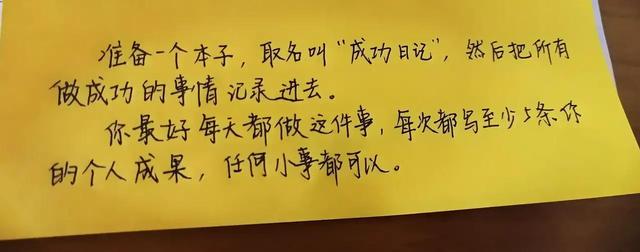 准备一个本子，取名叫“成功日记”，然后把所有
做成功的事情记录进去。
你最好每天都做这件事，每次都写至少5条你
的个人成果，任何小事都可以。